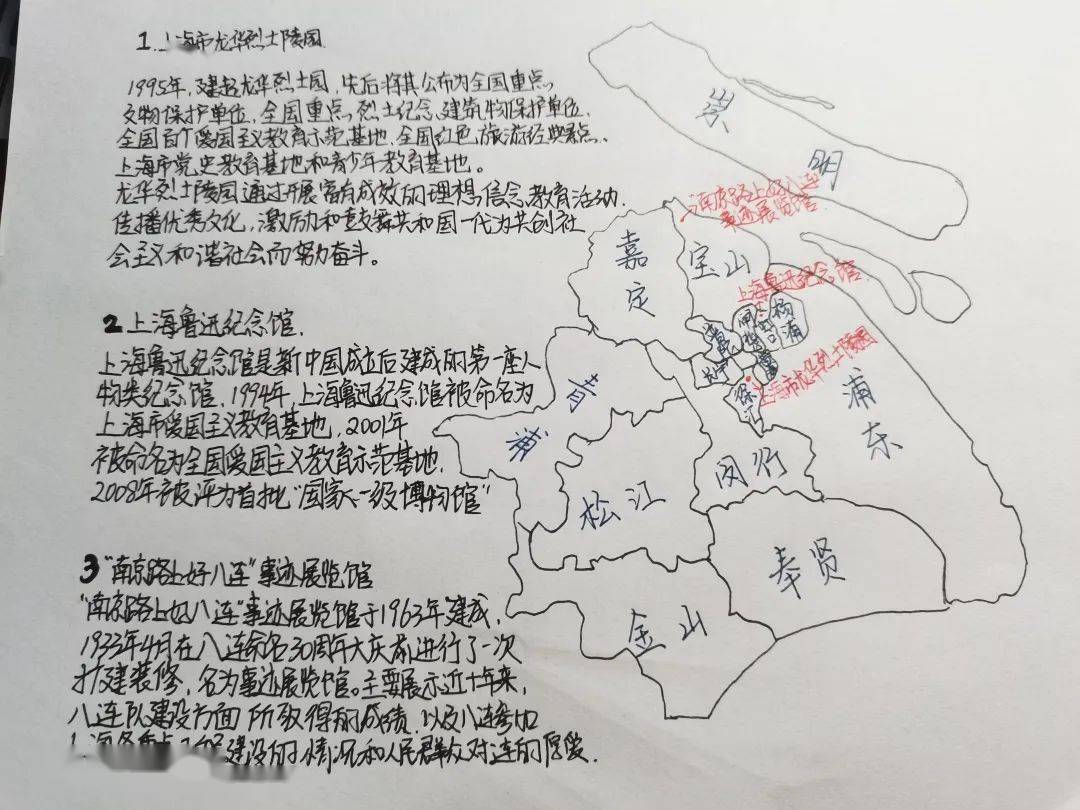 1.上海市龙华烈士陵园.
1995年，建起龙华烈士园，先后将其公布为全国重点
文物保护单位、全国重点烈士纪念建筑物保护单位、
全国百个爱国主义教育示范基地、全国红色旅游经典景点、
上海市党史教育基地和青少年教育基地。
龙华烈士陵园通过开展富有成效的理想信念教育活动.
传播优秀文化，激励和鼓舞共和国一代为共创社
会主义和谐社会而努力奋斗。
2 上海鲁迅纪念馆.
上海鲁迅纪念馆是新中国成立后建成的第一座人
物类纪念馆. 1994年，上海鲁迅纪念馆被命名为
上海市爱国主义教育基地，2001年
被命名为全国爱国主义教育示范基地.
2008年被评为首批“国家一级博物馆”
3“南京路上好八连”事迹展览馆
“南京路上好八连”事迹展览馆于1963年建成，
1933年4月在八连命名30周年大庆前进行了一次
扩建装修，名为事迹展览馆。主要展示近十年来，
八连队建设方面所取得的成绩，以及八连参加
建设的情况和人民群众对连的厚爱.
崇明
南京路上好八连
事迹展览馆
嘉定
宝山
上海鲁迅纪念馆
杨浦
上海市龙华烈士陵园
徐汇
浦东
青浦
闵行
松江
奉贤
金山